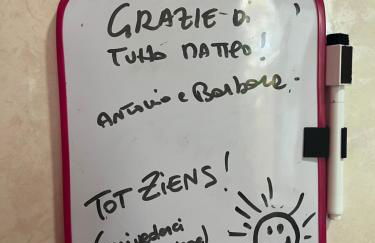 GRAZIE DI
TUTTO MATTEO!
Antonio e Barbara
TOT ZIENS!
(arrivederci